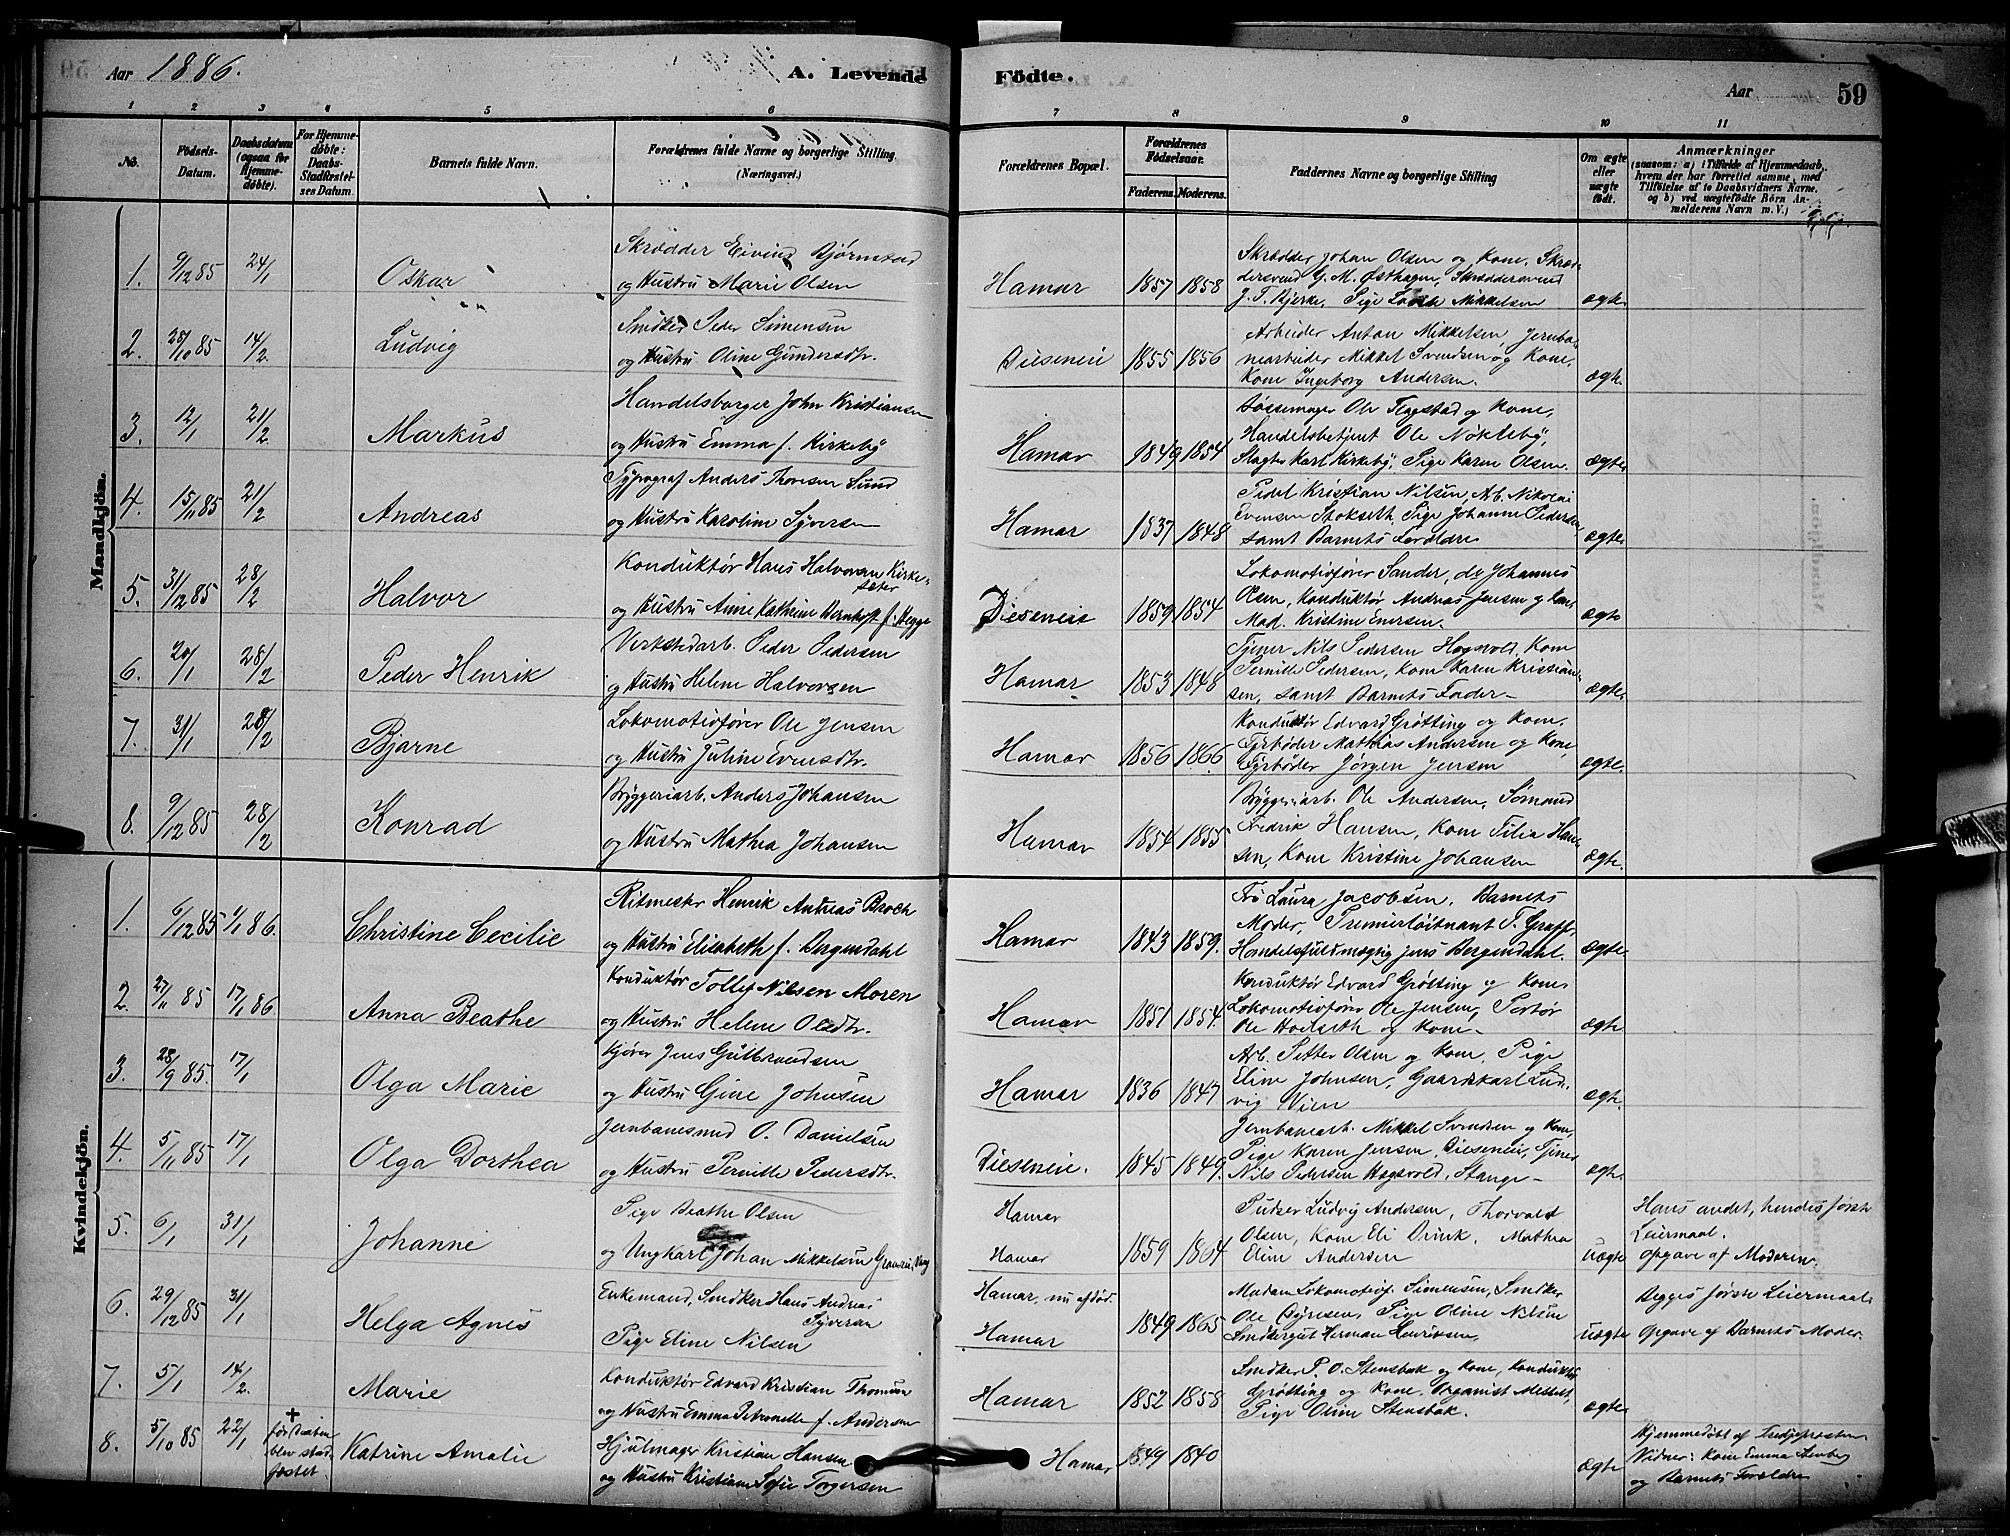 Aar 1886. A. Levende Födte. Aar 59
1 2 3 4 5 6 7 8 9 10 11
No. Födsels-Datum. Daabsdatum (ogsaa for Hjemmedöbte). For Hjemmedöbte: Daabs-Stadfæstelses Datum. Barnets fulde Navn. Forældrenes fulde Navne og borgerlige Stilling. (Næringsvei.) Forældrenes Bopæl. Forældrenes Födselsaar. Faderens. Moderens. Faddernes Navne og borgerlige Stilling Om ægte eller uægte födt. Anmærkninger (saasom: a) i Tilfælde af Hjemmedaab, hvem der har forrettet samme, med Tilföielse af to Daabsvidners Navne, og b) ved uægtefödte Börn Anmelderens Navn m. V.)
Mandkjön.
1. 9/12 85 24/1 Oskar
Skrædder Eivind Bjørnstad
og Hustru Marie Olsen
Hamar 1857 1858
Skrædder Johan Olsen og Kone, Skræd-
dersvend G. M. Østhagen, Skræddersvend
J. T. Bjerke, Pige Mikkelsen
ægte
2. 28/10 85 14/2 Ludvig
Smed Peder Simensen
og Hustru Oline Gundersdtr.
Dieseneie 1855 1856
Arbeider Anton Mikkelsen, Jernba-
nearbeider Mikkel Svendsen og Kone,
Kone Ingeborg Andersen.
ægte.
3. 12/1 21/2 Markus
Handelsborger John Kristiansen
og Hustru Emma f. Kirkeby
Hamar 1849 1854
Bøssemager Ole Flagstad og Kone,
Handelsbetjent Ole Nökleby,
Slagter Karl Kirkeby, Pige Karen Olsen.
ægte
4. 15/11 85 21/2 Andreas
Typograf Anders Thoresen Lund
og Hustru Karoline Syversen
Hamar 1837 1848
Pedel Kristian Nilsen, Arb. Nikolai
Evensen Stokseth, Pige Johanne Pedersen,
samt Barnets Forældre
ægte
5. 31/12 85 28/2 Halvor
Konduktør Hans Halvorsen Kirke-
sæter
og Hustru Anne Kathrine Bernhoft f. Hegge
Dieseneie 1859 1854
Lokomotivfører Sander, do Johannes
Olsen, Konduktør Andreas Jensen og Kone,
Mad. Kristine Enersen.
ægte
6. 20/1 28/2 Peder Henrik
Verkstedarb. Peder Pedersen
og Hustru Helene Halvorsen
Hamar 1853 1848
Tjener Nils Pedersen Hogsvold, Kone
Pernille Pedersen, Kone Karen Kristian-
sen, samt Barnets Fader
ægte
7. 31/1 28/2 Bjarne
Lokomotivfører Ole Jensen
og Hustru Juline Evensdtr.
Hamar 1856 1866
Konduktør Edvard Grøtting og Kone,
Fyrbøder Mathias Andersen og Kone,
Fyrbøder Jörgen Jensen
ægte.
8. 9/12 85 28/2 Konrad
Bryggeriarb. Anders Johansen
og Hustru Mathea Johansen
Hamar 1854 1855
Bryggeriarb. Ole Andersen, Sömand
Fredrik Hansen, Kone Tilia Han-
sen, Kone Kristine Johansen
ægte.
Kvindekjön.
1. 6/12 85 1/1 86. Christine Cecilie
Ritmester Henrik Andreas Broch
og Hustru Elisabeth f. Bergendahl
Hamar 1843 1859.
Fru Laura Jacobsen, Barnets
Moder, Premierløitnant T. Graff,
Handelsfuldmægtig Jens Bergendahl.
ægte
2. 27/11 85 17/1 86 Anna Beathe
Konduktør Tollef Nilsen Moren
og Hustru Helene Olsdtr.
Hamar 1851 1854.
Konduktør Edvard Grøtting og Kone
Lokomotivfører Ole Jensen, Portør
Ole Hoelseth og Kone
ægte
3. 28/9 85. 17/1 Olga Marie
Kjører Jens Gulbrandsen
og Hustru Gine Johnsen
Hamar 1836 1847
Arb. Petter Olsen og Kone, Pige
Eline Johnsen, Gaardskarl Lud-
vig Vien
ægte.
4. 5/11 85 17/1 Olga Dorthea
Jernbanesmed O. Danielsen
og Hustru Pernille Pedersdtr.
Dieseneie. 1845 1849.
Jernbanearb. Mikkel Svendsen og Kone,
Pige Karen Jensen, Dieseneie, Tjener
Nils Pedersen Hogsvold, Stange
ægte.
5. 6/1 31/1 Johanne
Pige Beathe Olsen
og Ungkarl Johan Mikkelsen Vang
Hamar
Hamar 1859 1864
Pudser Ludvig Andersen, Thorvald
Olsen, Kone Eli Brink, Mathea
Eline Andersen
uægte
Hans andet, hendes første
Leiermaal.
Opgave af Moderen.
6. 29/12 85 31/1 Helga Agnes
Enkemand, Snedker Hans Andreas
Syversen
Pige Eline Nilsen
Hamar, nu afdød.
Hamar 1849 1865
Madam Lokomotivf. Simensen, Snedker
Ole Syversen, Pige Oline Nilsen
Snedkergut Herman Henriksen
uægte
Begges første Leiermaal.
Opgave af Barnets Moder.
7. 5/1 14/2. Marie
Konduktør Edvard Kristian Thomsen
og Hustru Emma Petronelle f. Andersen
Hamar 1852 1858
Snedker P. O. Stensbak og Kone, Konduktør
Grøtting og Kone, Organist Mellest,
Pige Oline Stensbak.
ægte
8. 5/10 85 22/1 + før Daaben blev stadfæstet Katrine Amalie
Hjulmager Kristian Hansen
og Hustru Kristiane Sofie Torgersen
Hamar 1849 1840
ægte
Hjemmedøbt af Tredjepræsten
Vidner: Kone Emma Stenberg
og Barnets Forældre